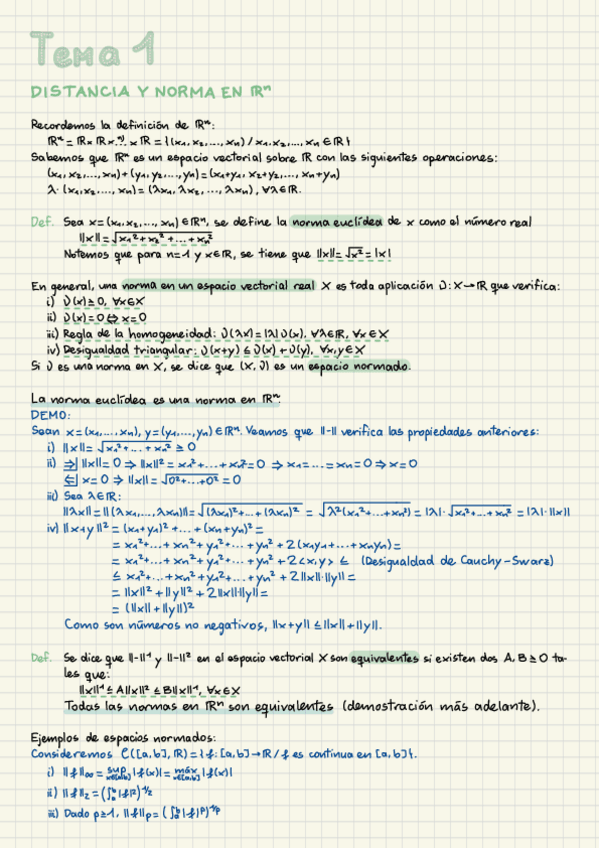 Tema 1
DISTANCIA Y NORMA EN ℝⁿ
Recordemos la definición de ℝⁿ:
ℝⁿ = ℝ × ℝ × ..ⁿ⁾.. × ℝ = {(x₁, x₂, ..., xₙ) / x₁, x₂, ..., xₙ ∈ ℝ}
Sabemos que ℝⁿ es un espacio vectorial sobre ℝ con las siguientes operaciones:
(x₁, x₂, ..., xₙ) + (y₁, y₂, ..., yₙ) = (x₁+y₁, x₂+y₂, ..., xₙ+yₙ)
λ · (x₁, x₂, ..., xₙ) = (λx₁, λx₂, ..., λxₙ), ∀λ∈ℝ.
Def. Sea x = (x₁, x₂, ..., xₙ) ∈ ℝⁿ, se define la norma euclídea de x como el número real
||x|| = √(x₁² + x₂² + ... + xₙ²)
Notemos que para n=1 y x∈ℝ, se tiene que ||x|| = √x² = |x|
En general, una norma en un espacio vectorial real X es toda aplicación υ: X → ℝ que verifica:
i) υ(x) ≥ 0, ∀x∈X
ii) υ(x) = 0 ⇔ x = 0
iii) Regla de la homogeneidad: υ(λx) = |λ| υ(x), ∀λ∈ℝ, ∀x∈X
iv) Desigualdad triangular: υ(x+y) ≤ υ(x) + υ(y), ∀x,y∈X
Si υ es una norma en X, se dice que (X, υ) es un espacio normado.
La norma euclídea es una norma en ℝⁿ:
DEMO:
Sean x = (x₁, ..., xₙ), y = (y₁, ..., yₙ) ∈ ℝⁿ. Veamos que ||·|| verifica las propiedades anteriores:
i) ||x|| = √(x₁² + ... + xₙ²) ≥ 0
ii) ⇒| ||x|| = 0 ⇒ ||x||² = x₁² + ... + xₙ² = 0 ⇒ x₁ = ... = xₙ = 0 ⇒ x = 0
⇐| x = 0 ⇒ ||x|| = √(0² + ... + 0²) = 0
iii) Sea λ∈ℝ:
||λx|| = ||(λx₁, ..., λxₙ)|| = √((λx₁)² + ... + (λxₙ)²) = √(λ²(x₁² + ... + xₙ²)) = |λ| · √(x₁² + ... + xₙ²) = |λ| · ||x||
iv) ||x+y||² = (x₁+y₁)² + ... + (xₙ+yₙ)² =
= x₁² + ... + xₙ² + y₁² + ... + yₙ² + 2(x₁y₁ + ... + xₙyₙ) =
= x₁² + ... + xₙ² + y₁² + ... + yₙ² + 2<x,y> ≤ (Desigualdad de Cauchy-Swarz)
≤ x₁² + ... + xₙ² + y₁² + ... + yₙ² + 2||x||·||y|| =
= ||x||² + ||y||² + 2||x||·||y|| =
= (||x|| + ||y||)²
Como son números no negativos, ||x+y|| ≤ ||x|| + ||y||.
Def. Se dice que ||·||¹ y ||·||² en el espacio vectorial X son equivalentes si existen dos A, B ≥ 0 ta-
les que:
||x||¹ ≤ A||x||² ≤ B||x||¹, ∀x∈X
Todas las normas en ℝⁿ son equivalentes (demostración más adelante).
Ejemplos de espacios normados:
Consideremos C([a,b], ℝ) = {f: [a,b] → ℝ / f es continua en [a,b]}.
i) ||f||∞ = sup x∈[a,b] |f(x)| = máx x∈[a,b] |f(x)|
ii) ||f||₂ = (∫ₐᵇ |f|²)^1/2
iii) Dado p≥1, ||f||ₚ = (∫ₐᵇ |f|ᵖ)^1/p